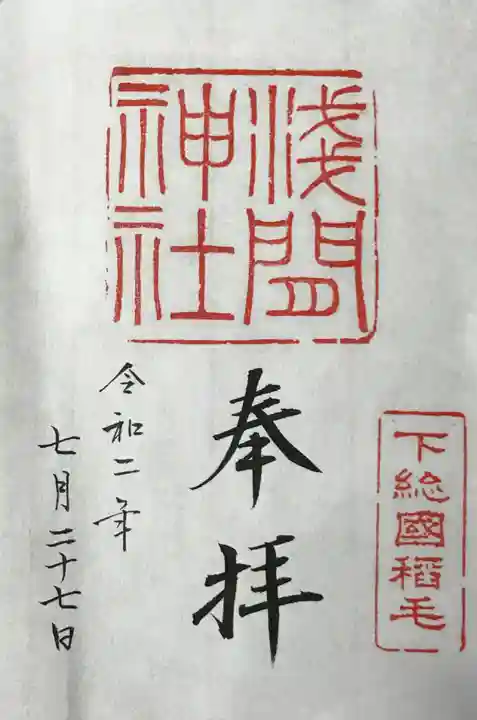 淺間
神社
下総國稻毛
奉拝
令和二年
七月二十七日